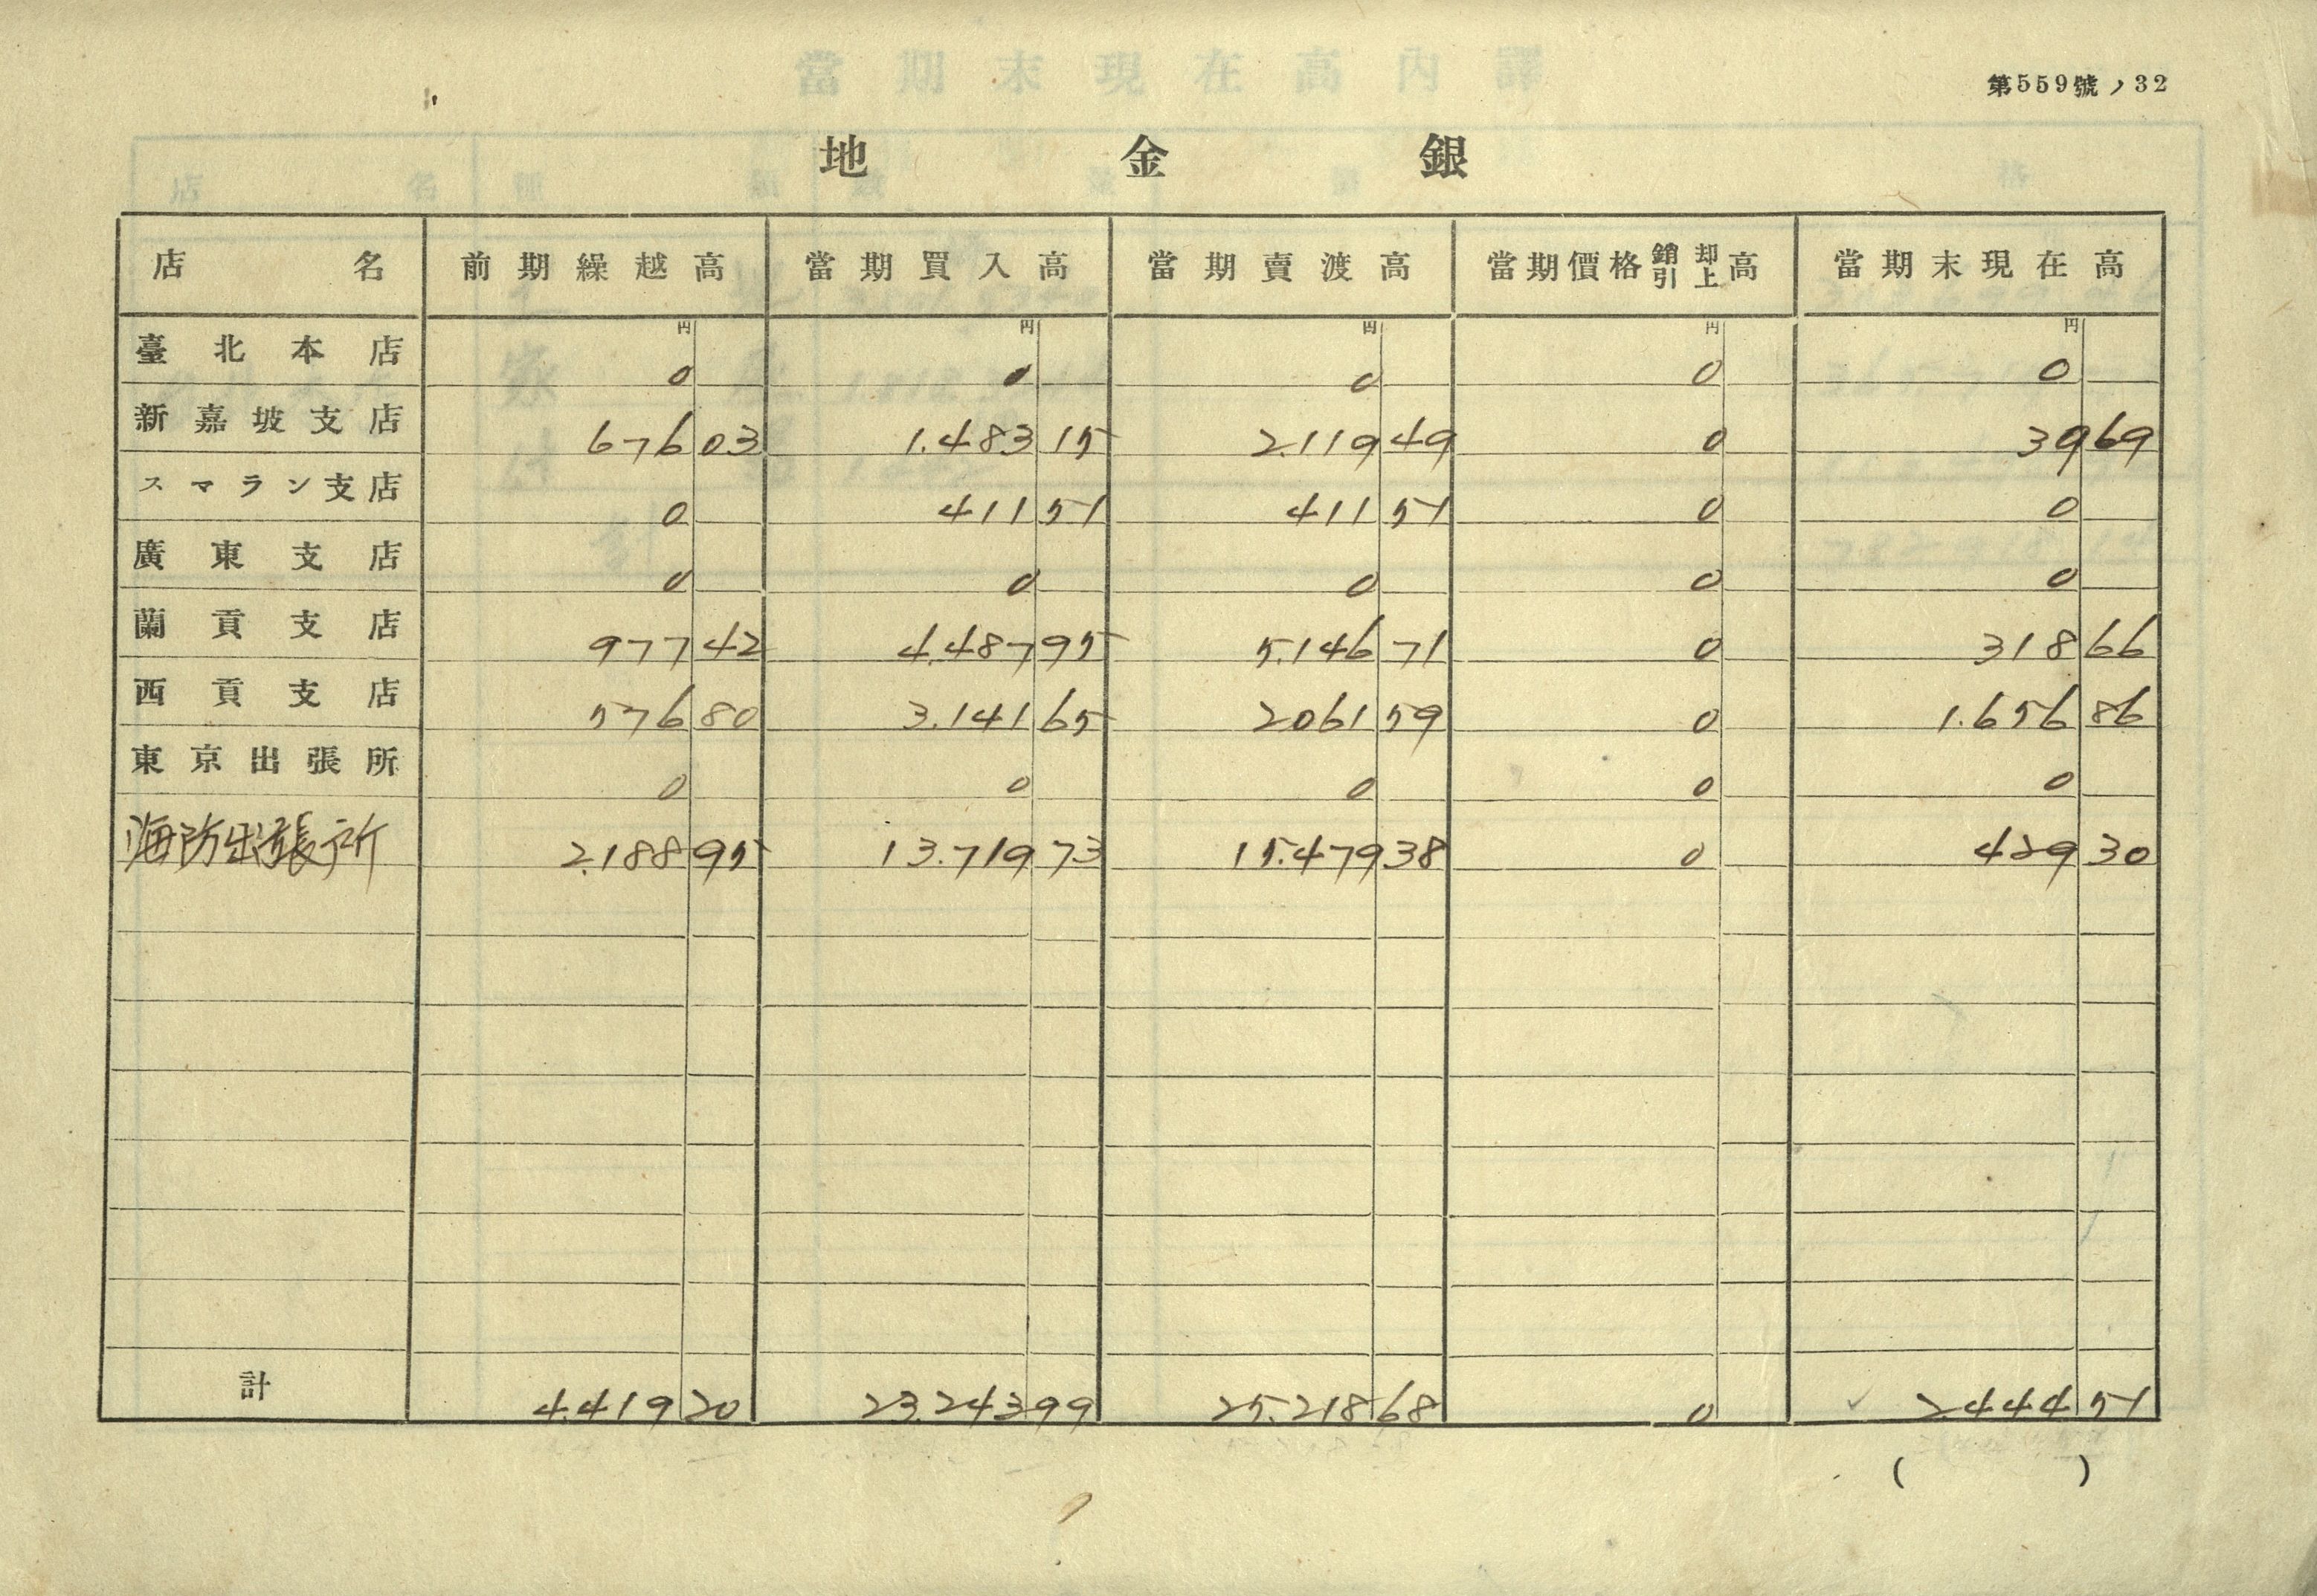 第559號ノ32
地金銀
店名 前期繰越高 當期買入高 當期賣渡高 當期價格銷却引上高 當期末現在高
円 円 円 円 円
臺北本店 0 0 0 0 0
新嘉坡支店 676 03 1.483 15 2.119 49 0 39 69
スマラン支店 0 411 51 411 51 0 0
廣東支店 0 0 0 0 0
蘭貢支店 977 42 4.487 95 5.146 71 0 318 66
西貢支店 576 80 3.141 65 2061 59 0 1.656 86
東京出張所 0 0 0 0 0
海防出張所 2.188 95 13.719 73 15.479 38 0 429 30
計 4.419 20 23.243 99 25.218 68 0 2444 51
( )